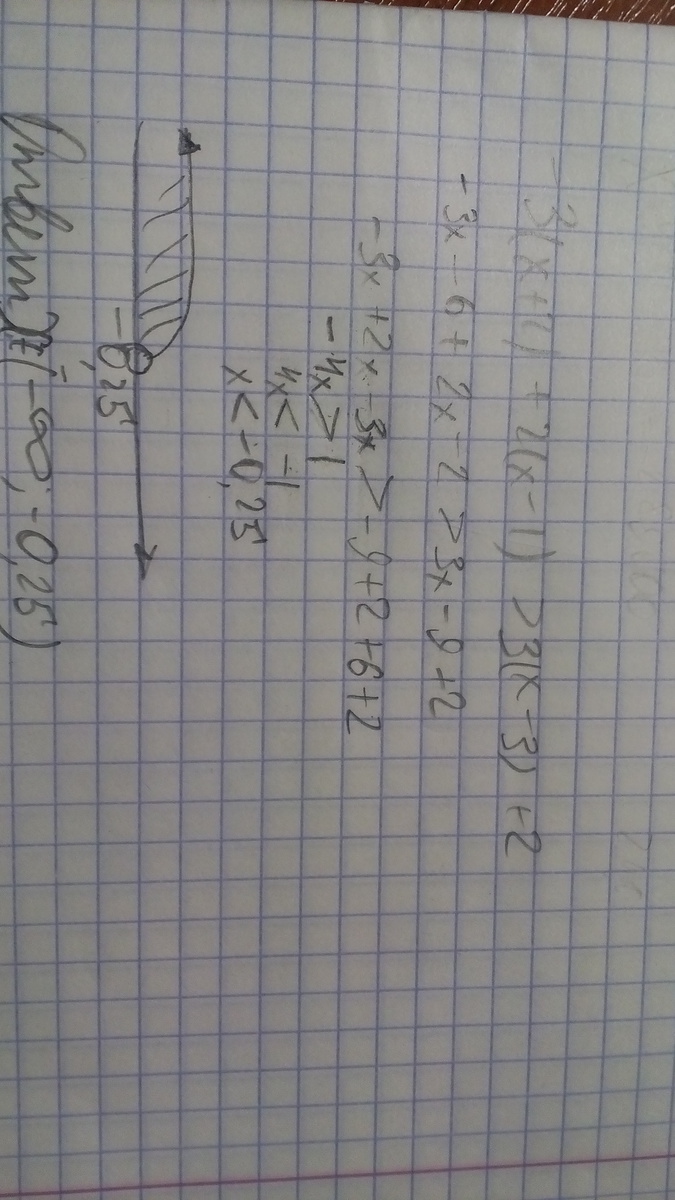 -3(x+2) + 2(x-1) >3(x-3) +2
-3x-6+2x-2>3x-9+2
-3x+2x-3x>-9+2+6+2
-4x>1
4x<-1
x<-0,25
-0,25
Ответ: (-∞; -0,25)